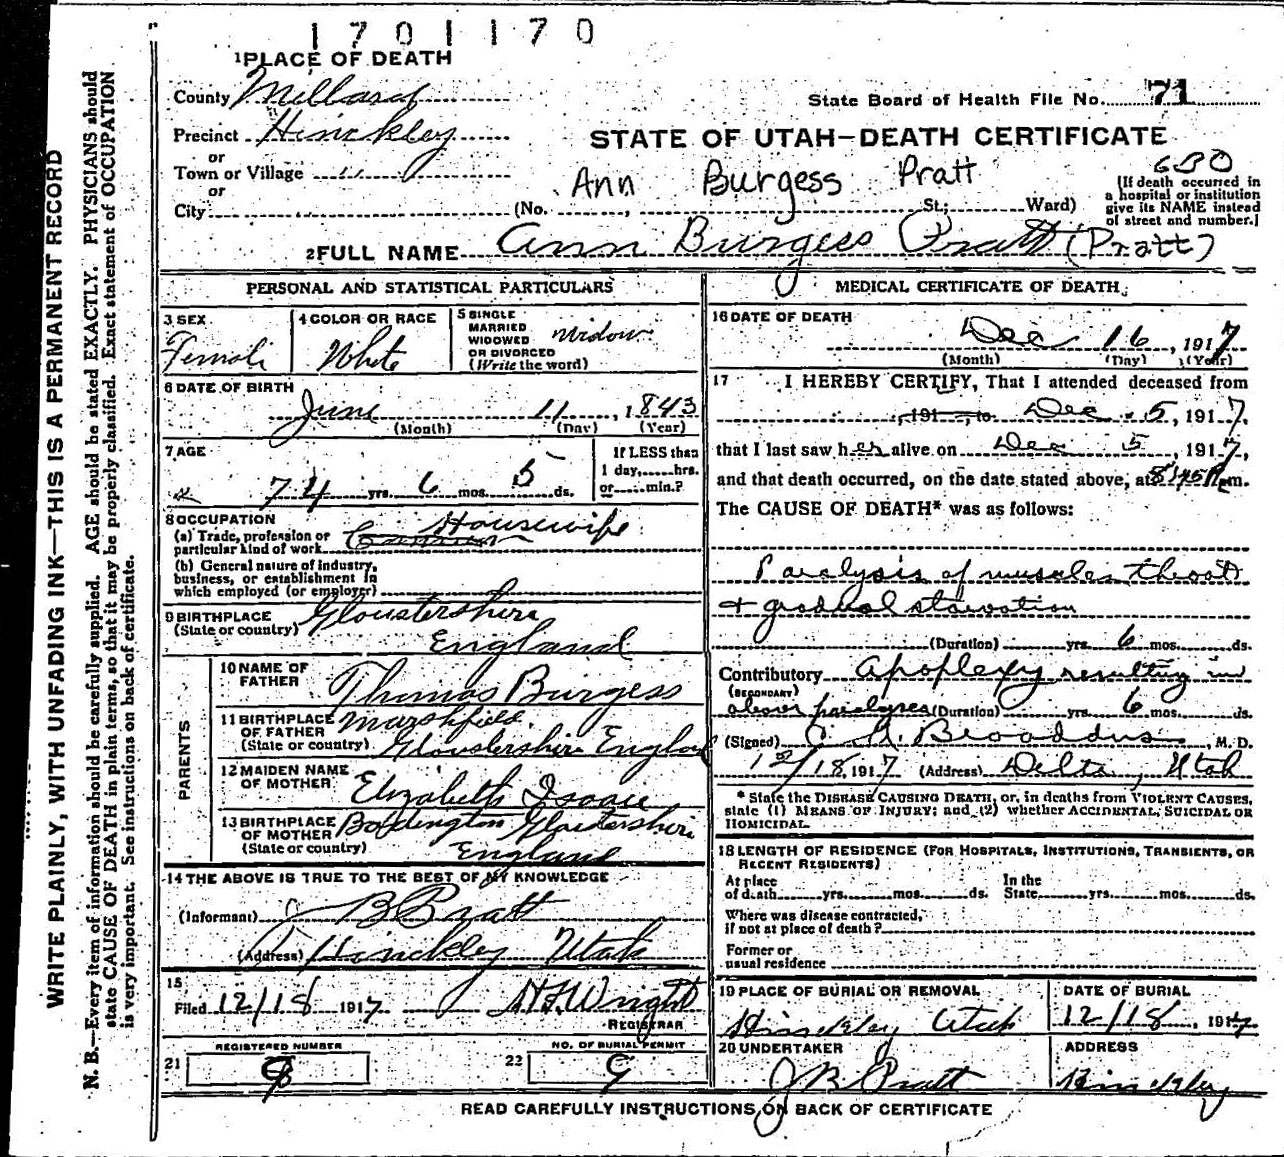 1701170
1 PLACE OF DEATH
County Millard
State Board of Health File No. 71
Precinct Hinckley
STATE OF UTAH—DEATH CERTIFICATE
or
Town or Village " "
or
630
Ann Burgess Pratt
[If death occurred in a hospital or institution give its NAME instead of street and number.]
City (No. , St.; Ward)
2 FULL NAME Ann Burgess Pratt (Pratt)
PERSONAL AND STATISTICAL PARTICULARS
3 SEX Female
4 COLOR OR RACE White
5 SINGLE MARRIED WIDOWED OR DIVORCED (Write the word) Widow
6 DATE OF BIRTH
June 11, 1843
(Month) (Day) (Year)
7 AGE
74 yrs. 6 mos. 5 ds.
If LESS than 1 day, hrs. or min.?
8 OCCUPATION
(a) Trade, profession or particular kind of work Housewife
(b) General nature of industry, business, or establishment in which employed (or employer)
9 BIRTHPLACE (State or country) Gloustershire
England
PARENTS
10 NAME OF FATHER Thomas Burgess
11 BIRTHPLACE OF FATHER (State or country) Marshfield, Gloustershire England
12 MAIDEN NAME OF MOTHER Elizabeth Isaac
13 BIRTHPLACE OF MOTHER (State or country) Gloustershire
England
14 THE ABOVE IS TRUE TO THE BEST OF MY KNOWLEDGE
(Informant) J B Pratt
(Address) Hinckley Utah
15
Filed 12/18 1917 Wright
REGISTRAR
21 REGISTERED NUMBER
22 NO. OF BURIAL PERMIT 9
MEDICAL CERTIFICATE OF DEATH
16 DATE OF DEATH
Dec 16, 1917
(Month) (Day) (Year)
17 I HEREBY CERTIFY, That I attended deceased from
191 to Dec 5, 1917,
that I last saw her alive on Dec 5, 1917,
and that death occurred, on the date stated above, at 8:45 P m.
The CAUSE OF DEATH* was as follows:
Paralysis of muscles throat
+ gradual starvation
(Duration) yrs. 6 mos. ds.
Contributory Apoplexy resulting in
(SECONDARY)
above paralysis (Duration) yrs. 6 mos. ds.
(Signed) Broaddus, M. D.
12/18, 1917 (Address) Delta, Utah
* State the DISEASE CAUSING DEATH, or, in deaths from VIOLENT CAUSES,
state (1) MEANS OF INJURY; and (2) whether ACCIDENTAL, SUICIDAL OR
HOMICIDAL.
18 LENGTH OF RESIDENCE (FOR HOSPITALS, INSTITUTIONS, TRANSIENTS, OR
RECENT RESIDENTS)
At place of death yrs. mos. ds. In the State yrs. mos. ds.
Where was disease contracted,
if not at place of death?
Former or
usual residence
19 PLACE OF BURIAL OR REMOVAL
Hinckley Utah
DATE OF BURIAL
12/18, 1917
20 UNDERTAKER
J B Pratt
ADDRESS
Hinckley
READ CAREFULLY INSTRUCTIONS ON BACK OF CERTIFICATE
WRITE PLAINLY, WITH UNFADING INK—THIS IS A PERMANENT RECORD
N. B.—Every item of information should be carefully supplied. AGE should be stated EXACTLY. PHYSICIANS should
state CAUSE OF DEATH in plain terms, so that it may be properly classified. Exact statement of OCCUPATION
is very important. See instructions on back of certificate.